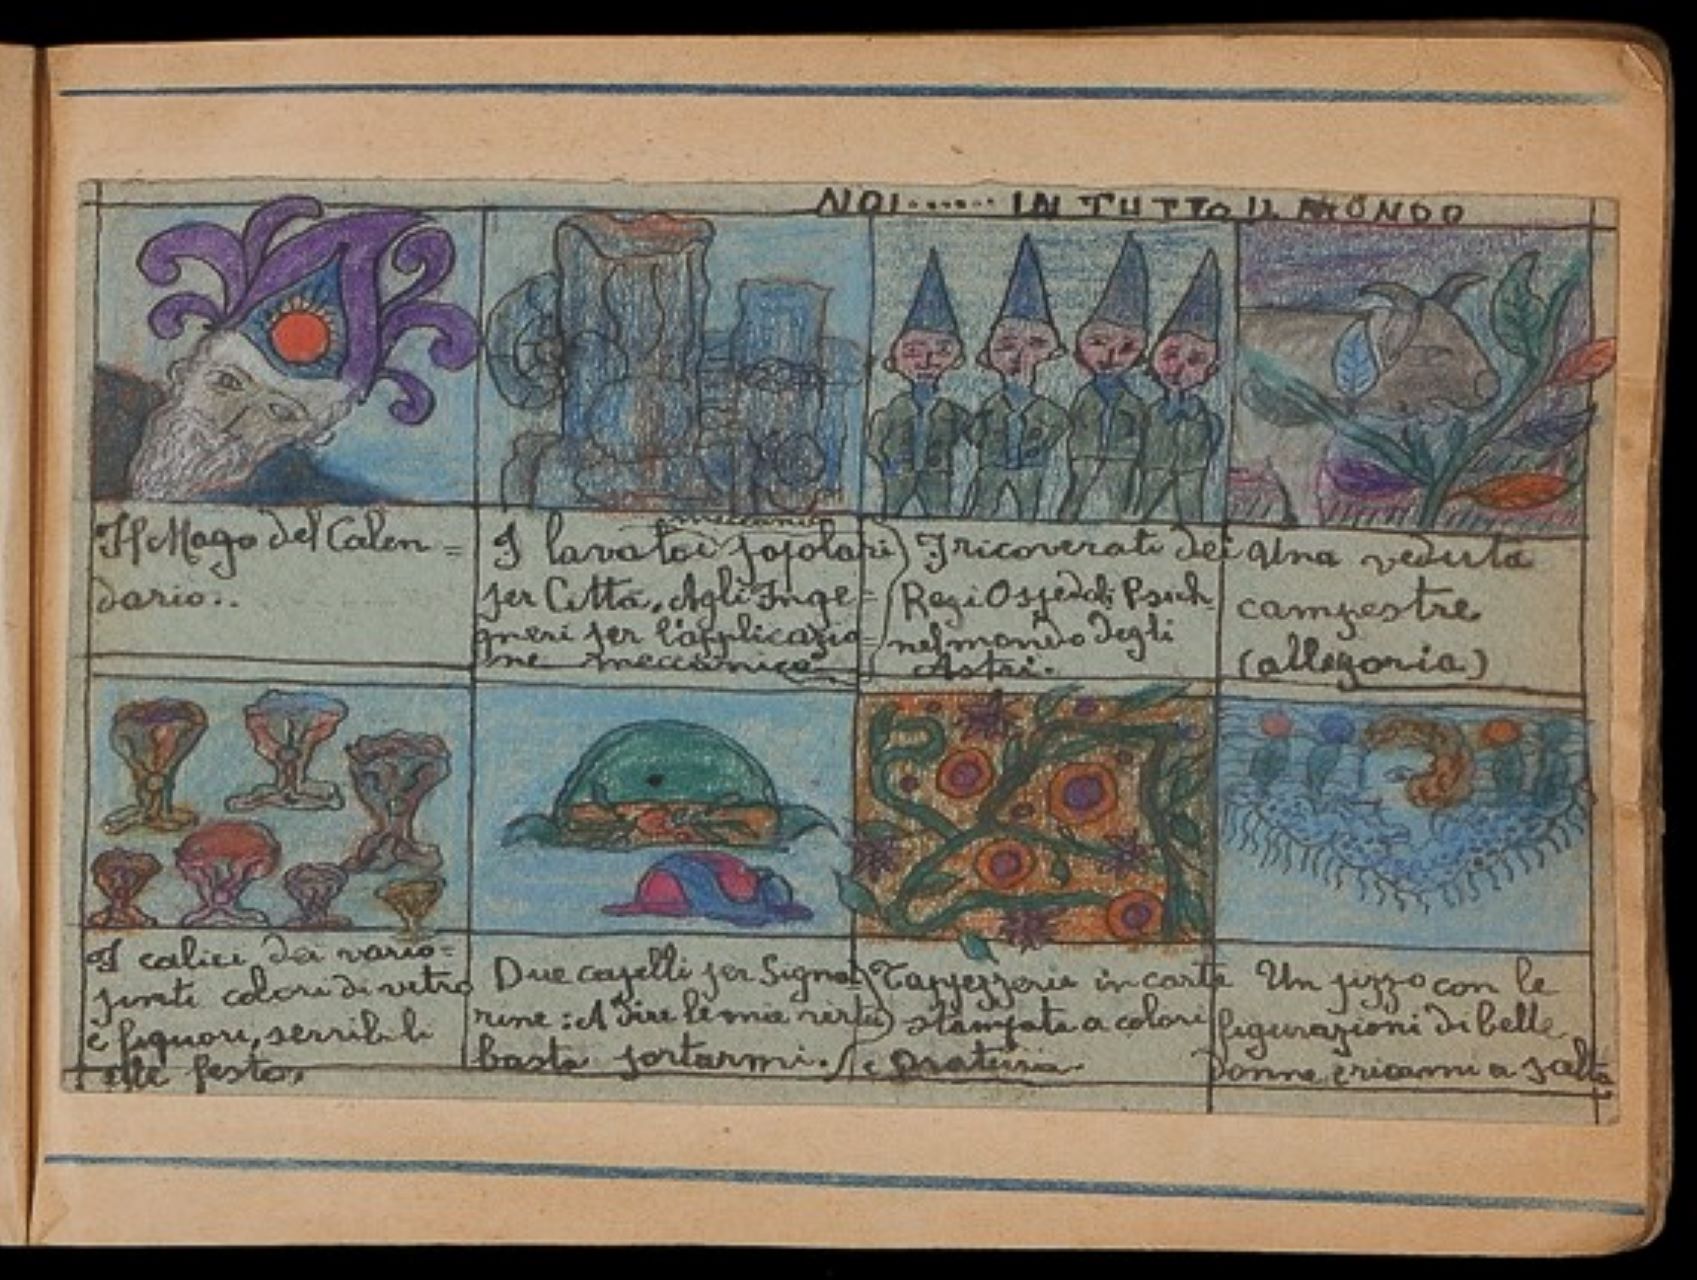 NOI...... IN TUTTO IL MONDO
Il Mago del Calen=
dario..
meccanici
I lavatoi popolari
per Città. Agli Inge=
gneri per l'applicazio=
ne meccanica
I ricoverati dei
Regi Ospedali Psich.
nel mondo degli
Astri.
Una veduta
campestre
(allegoria)
I calici dei vario=
pinti colori di vetro
e liquori, serribili
alle feste,
Due capelli per Signo
rine: A dire le mie virtù
basta portarmi.
Tappezzerie in carta
stampata a colori
e
Un pizzo con le
figurazioni di belle
donne, e ricami a